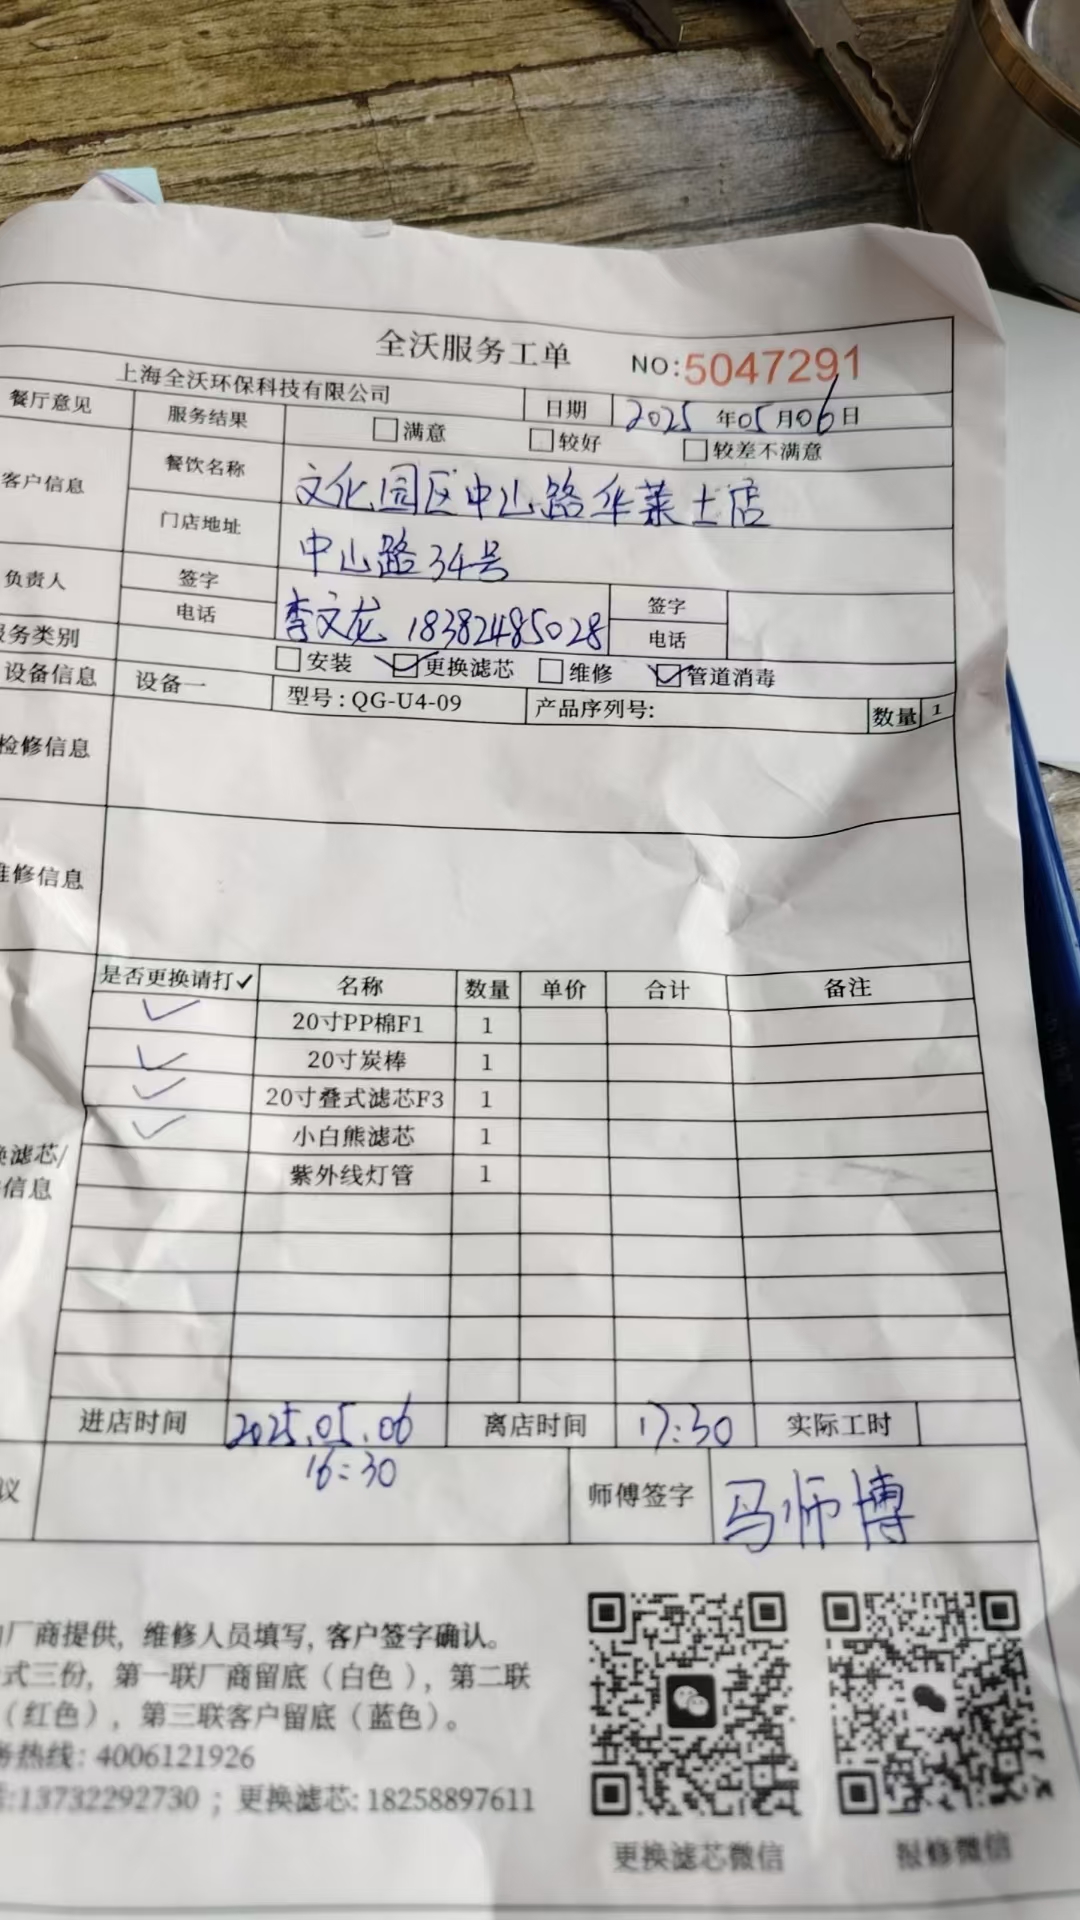 全沃服务工单 NO:5047291
上海全沃环保科技有限公司 日期 2025年05月06日
餐厅意见 服务结果 满意 较好 较差不满意
客户信息 餐饮名称 文化园区中山路华莱士店
门店地址 中山路34号
负责人 签字 李文龙 签字
电话 18382485028 电话
务类别 安装 更换滤芯 维修 管道消毒
设备信息 设备一 型号: QG-U4-09 产品序列号: 数量 1
检修信息
修信息
是否更换请打✓ 名称 数量 单价 合计 备注
✓ 20寸PP棉F1 1
✓ 20寸炭棒 1
✓ 20寸叠式滤芯F3 1
✓ 小白熊滤芯 1
紫外线灯管 1
滤芯/
信息
进店时间 2025.05.06 离店时间 17:30 实际工时
16:30
议 师傅签字 马师博
厂商提供, 维修人员填写, 客户签字确认。
式三份, 第一联厂商留底（白色）, 第二联
（红色）, 第三联客户留底（蓝色）。
热线: 4006121926
:13732292730 ; 更换滤芯: 18258897611
更换滤芯微信 报修微信